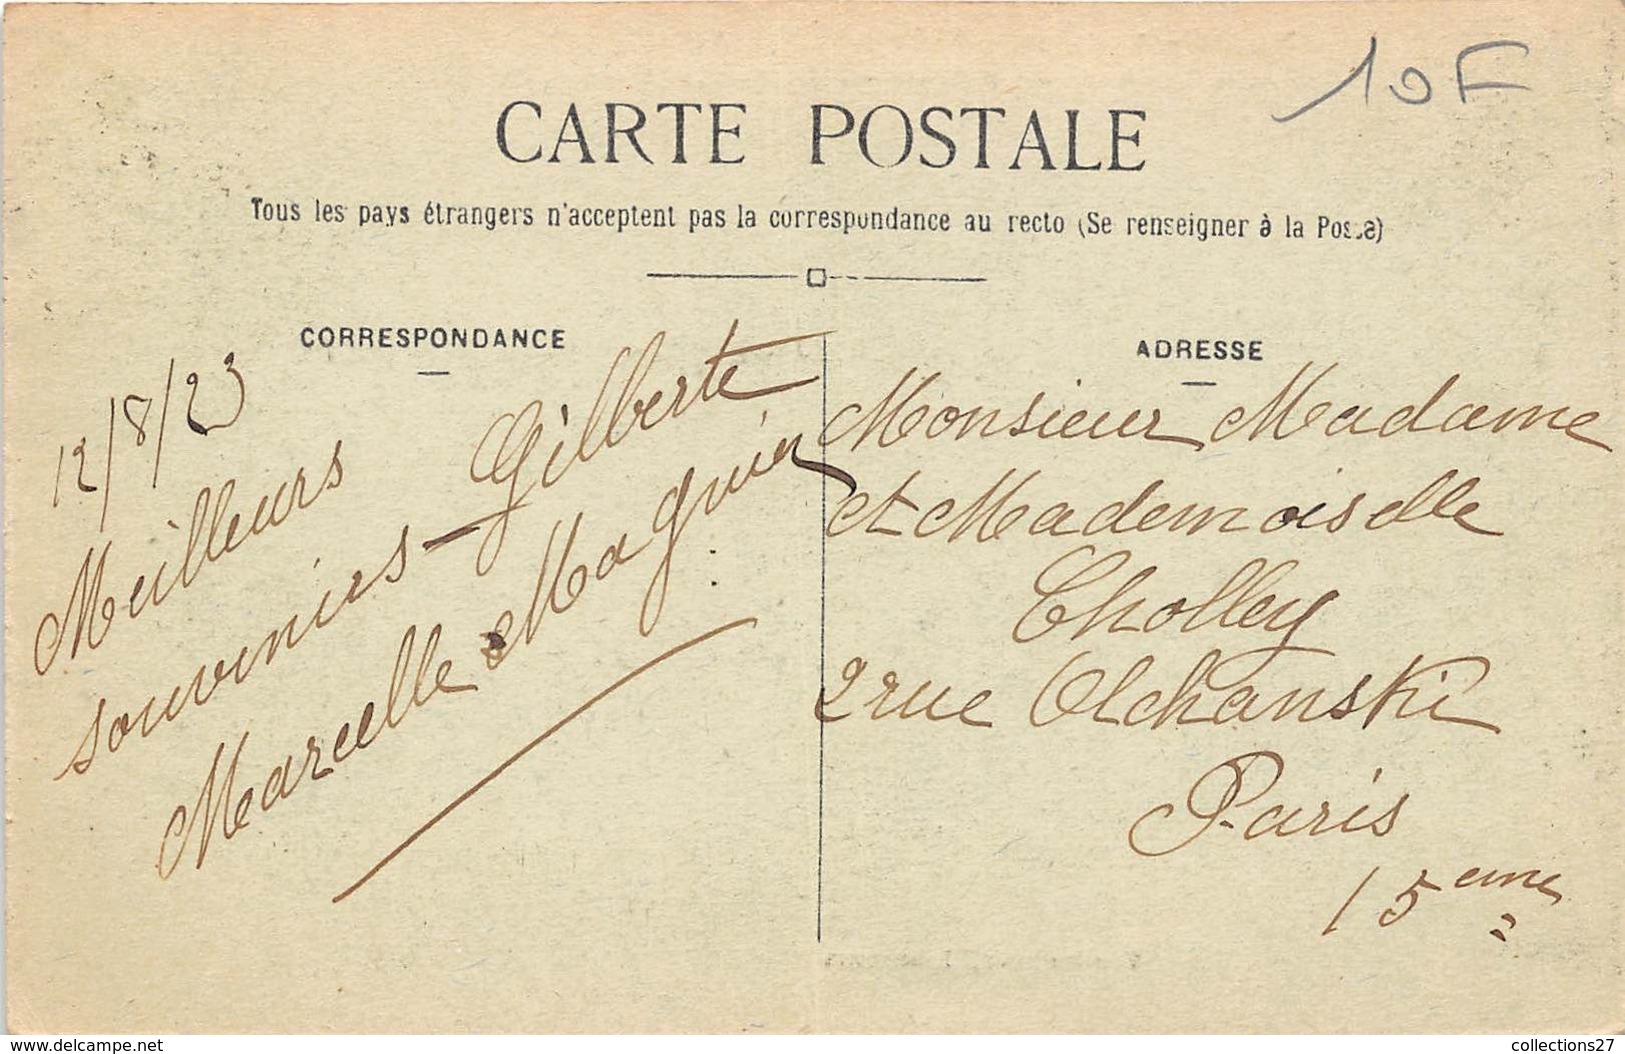 10F
CARTE POSTALE
Tous les pays étrangers n'acceptent pas la correspondance au recto (Se renseigner à la Poste)
CORRESPONDANCE
12/8/23
Meilleurs
souvenirs - Gilberte
Marcelle Maguier
ADRESSE
Monsieur Madame
et Mademoiselle
Cholley
2 rue Olchanski
Paris
15eme
delcampe.net
collections27